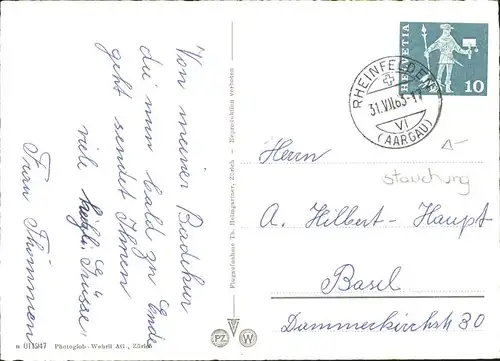 Von meiner Badekur
die nun bald zu Ende
geht sendet Ihnen
viele herzl. Grüsse
Frau Thommen
n 011947 Photoglob-Wehrli AG., Zürich
Flugaufnahme Th. Baumgartner, Zürich - Reproduktion verboten
PZ W
HELVETIA
10
RHEINFELDEN
31.VII.63-17
VI
(AARGAU)
Herrn
Stauchung
A. Hilbert-Haupt
Basel
Dammerkirchstr 30